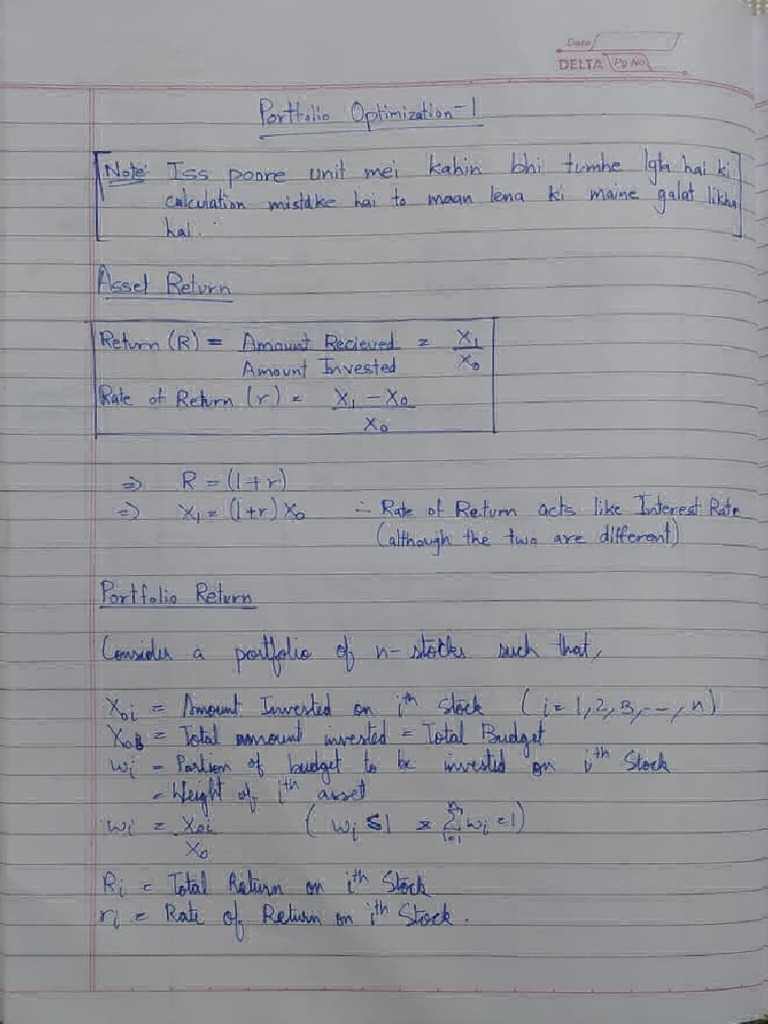 Date
DELTA Pg No
Portfolio Optimization-1
Note: Iss poore unit mei kahin bhi tumhe lgta hai ki
calculation mistake hai to maan lena ki maine galat likha
hai.
Asset Return
Return (R) = Amount Recieved = X₁
Amount Invested X₀
Rate of Return (r) = X₁ - X₀
X₀
⇒ R = (1+r)
⇒ X₁ = (1+r) X₀ ∴ Rate of Return acts like Interest Rate
(although the two are different)
Portfolio Return
Consider a portfolio of n-stocks such that,
X₀i = Amount Invested on iᵗʰ Stock (i = 1, 2, 3, --, n)
= Total amount invested = Total Budget
wi = Portion of budget to be invested on iᵗʰ Stock
= Weight of iᵗʰ asset
wi = X₀i ( wi ≤ 1 & Σⁿᵢ₌₁ wi = 1)
X₀
Ri = Total Return on iᵗʰ Stock
ri = Rate of Return on iᵗʰ Stock.